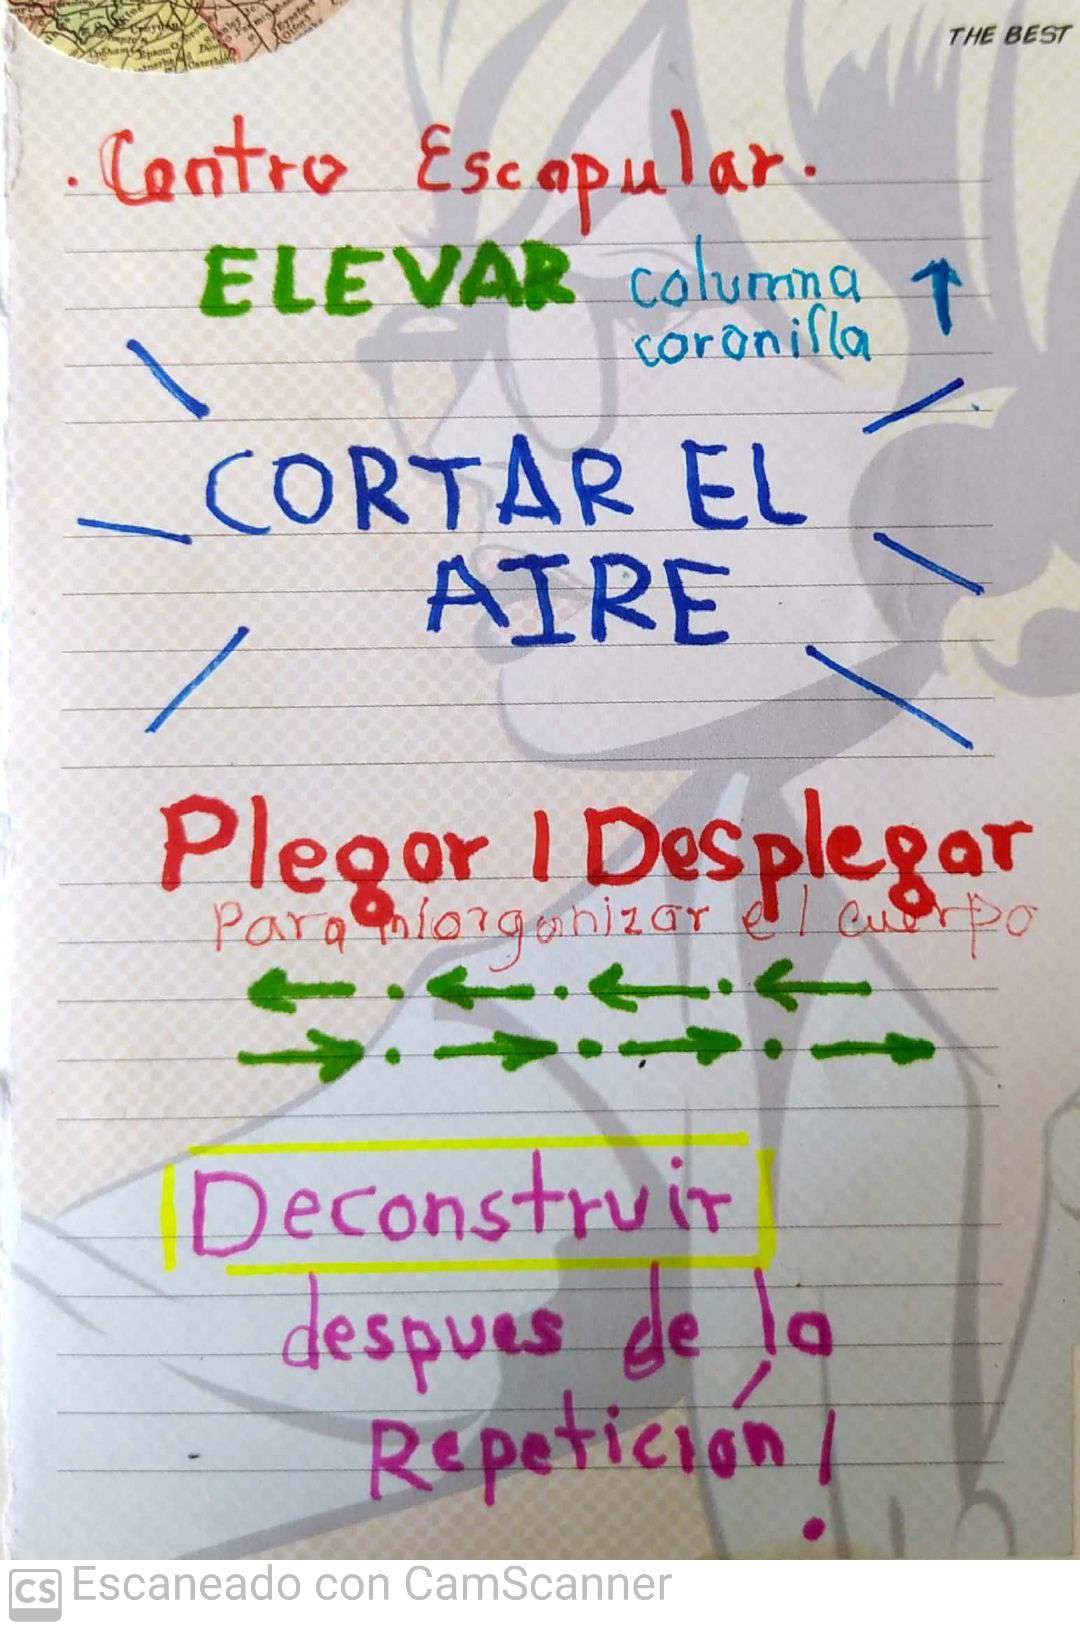 THE BEST
. Centro Escapular.
ELEVAR columna ↑
coronilla
CORTAR EL
AIRE
Plegar | Desplegar
para organizar el cuerpo
← . ← . ← . ←
→ . → . → . →
Deconstruir
despues de la
Repetición!
CS Escaneado con CamScanner